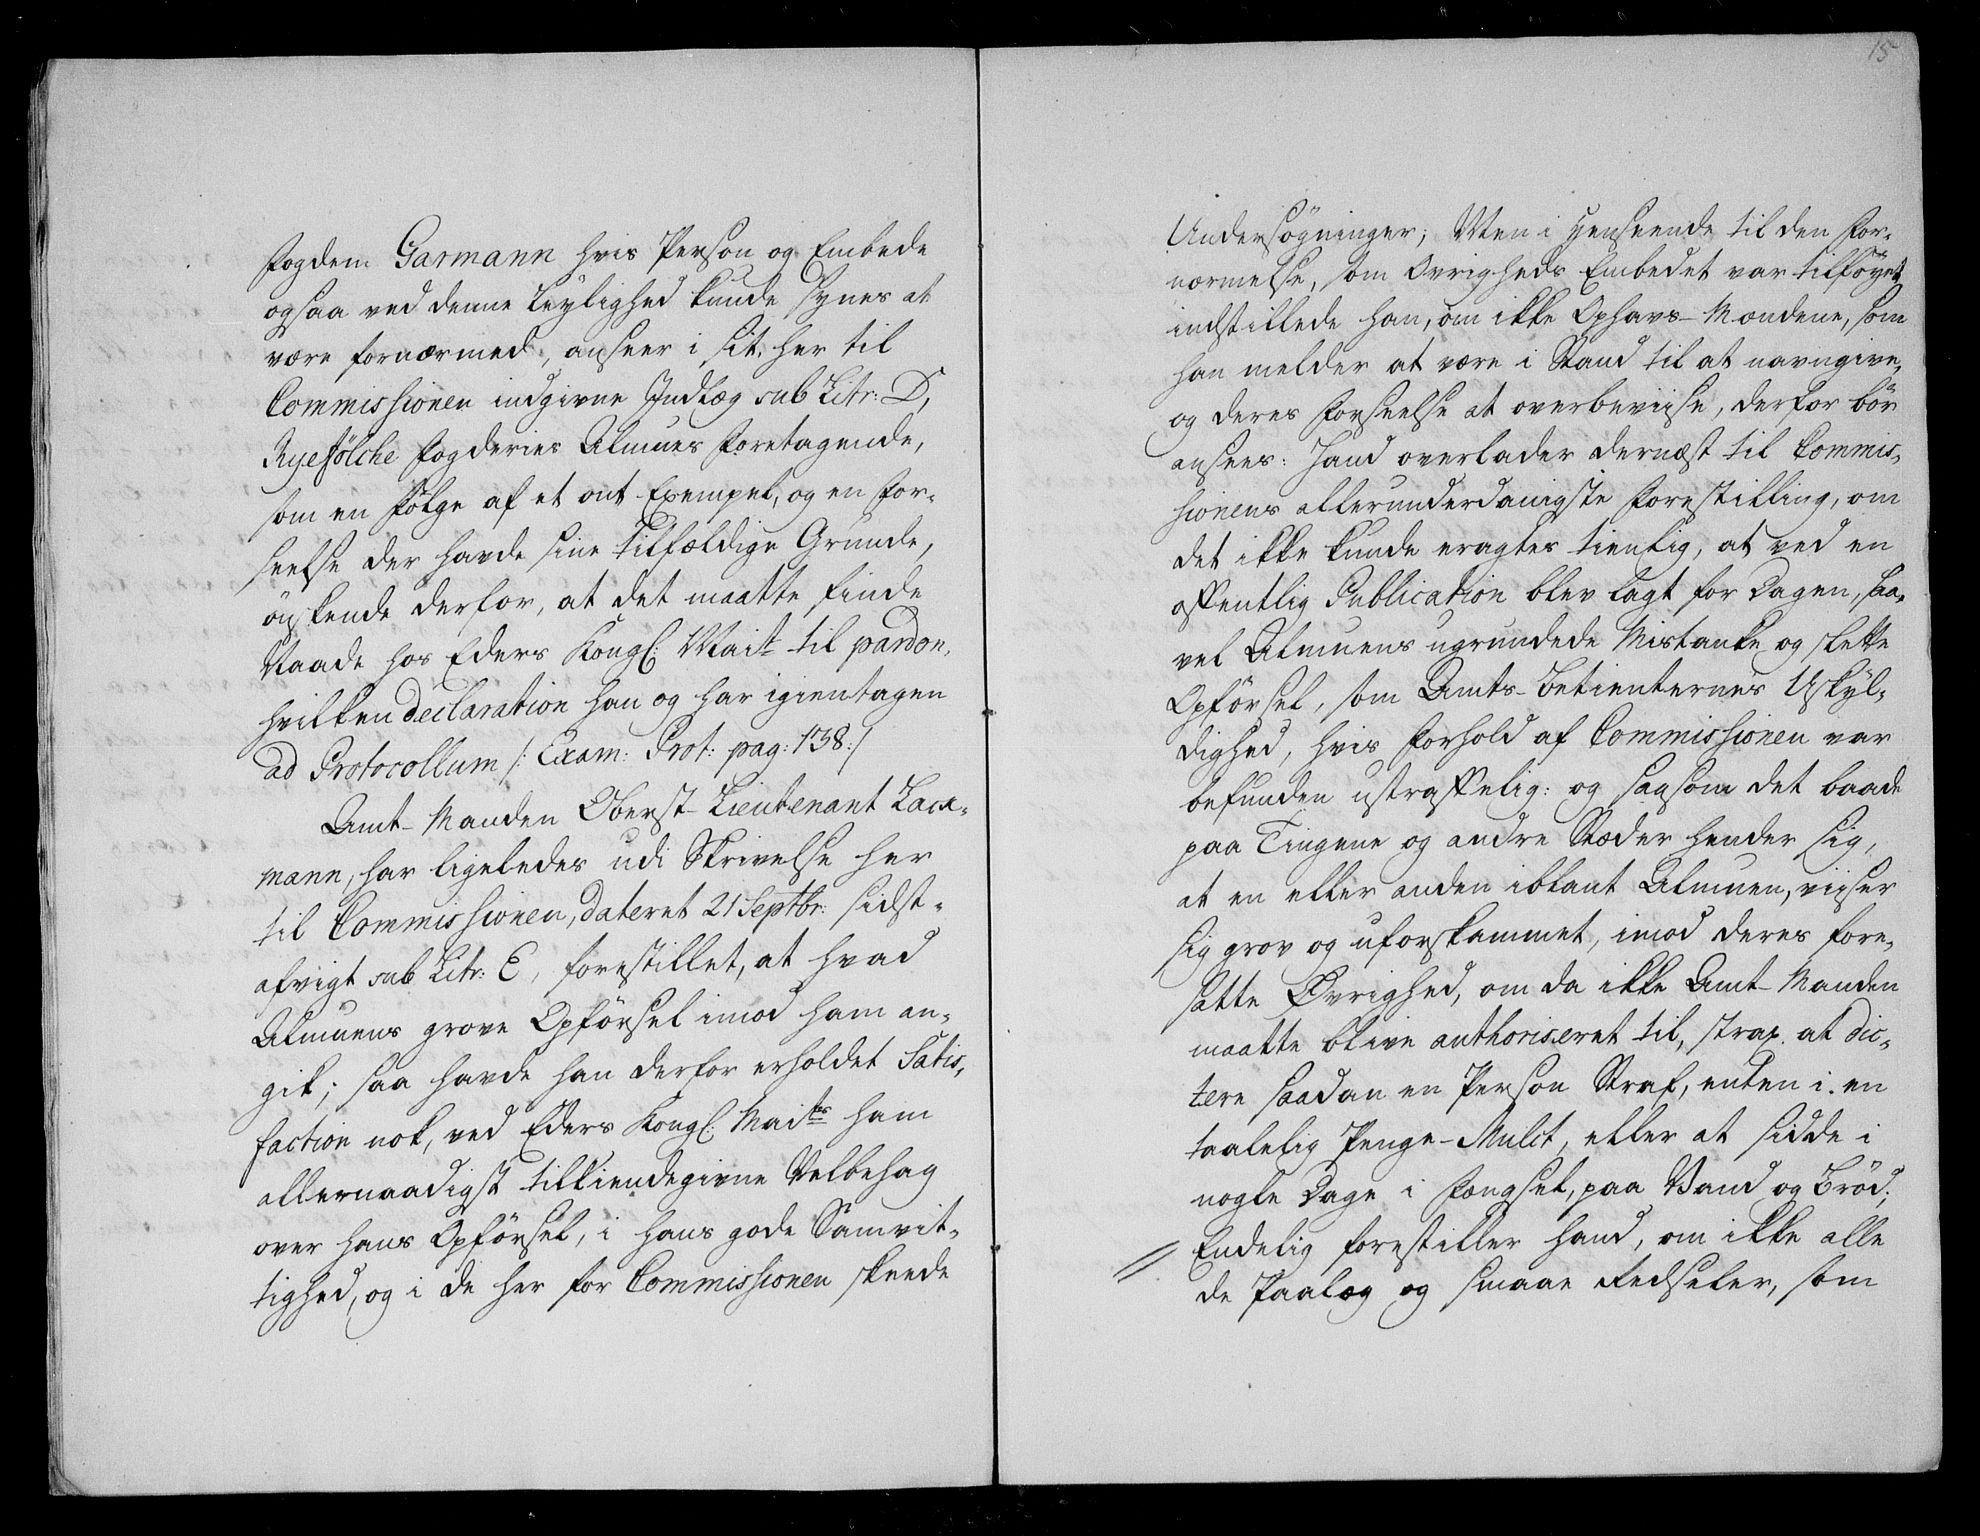 Fogden Garmann hvis Person og Embede
ogsaa ved denne Leylighed kunde synes at
være fornærmed, anseer i sit her til
Commissionen indgivne Indlæg sub Litr: D,
Ryefölche Fogderies Almues Foretagende,
som en Følge af et ont Exempel, og en For-
seelse der havde sine tilfældige Grunde,
önskende derfor, at det maatte finde
Naade hos Eders Kongl: Maist: til pardon,
hvilken declaration han og har igientagen
ad Protocollum /: Exam: Prot: pag: 138:/
Amt-Manden Oberst-Lieutenant Lack-
mann, har ligeledes udi Skrivelse her
til Commissionen, dateret 21 Septbr: sidst-
afvigt sub Litr: E, forestillet, at hvad
Almuens grove Opförsel imod ham an-
gik; saa havde han derfor erholdet Satis-
faction nok, ved Eders Kongl: Maists ham
allernaadigst tilkiendegivne Velbehag
over hans Opförsel, i hans gode Samvit-
tighed, og i de her for Commissionen skeede
15
Undersögninger; Men i Henseende til den For-
nærmelse, som Øvrigheds Embedet var tilföyet
indstillede han, om ikke Ophavs-Mændene, som
han melder at være i Stand til at navngive,
og deres Forseelse at overbeviise, derfor bör
ansees: Hand overlader dernæst til Commis-
sionens allerunderdanigste Forestilling, om
det ikke kunde eragtes tienlig, at ved en
offentlig Publication blev lagt for Dagen, saa-
vel Almuens ugrundede Mistanke og slette
Opförsel, som Amts-Betienternes Uskyl-
dighed, hvis Forhold af Commissionen var
befunden ustraffelig: og saasom det baade
paa Tingene og andre Stæder hender sig,
at en eller anden iblant Almuen, viiser
sig grov og uforskammet, imod deres fore-
satte Øvrighed, om da ikke Amt-Manden
maatte blive authoriseret til, strax at dic-
tere saadan en Person Straf, enten i en
taalelig Penge-Mulct, eller at sidde i
nogle Dage i Fængsel, paa Vand og Bröd;
Endelig forestiller hand, om ikke alle
de Paalæg og smaae Redseler, som